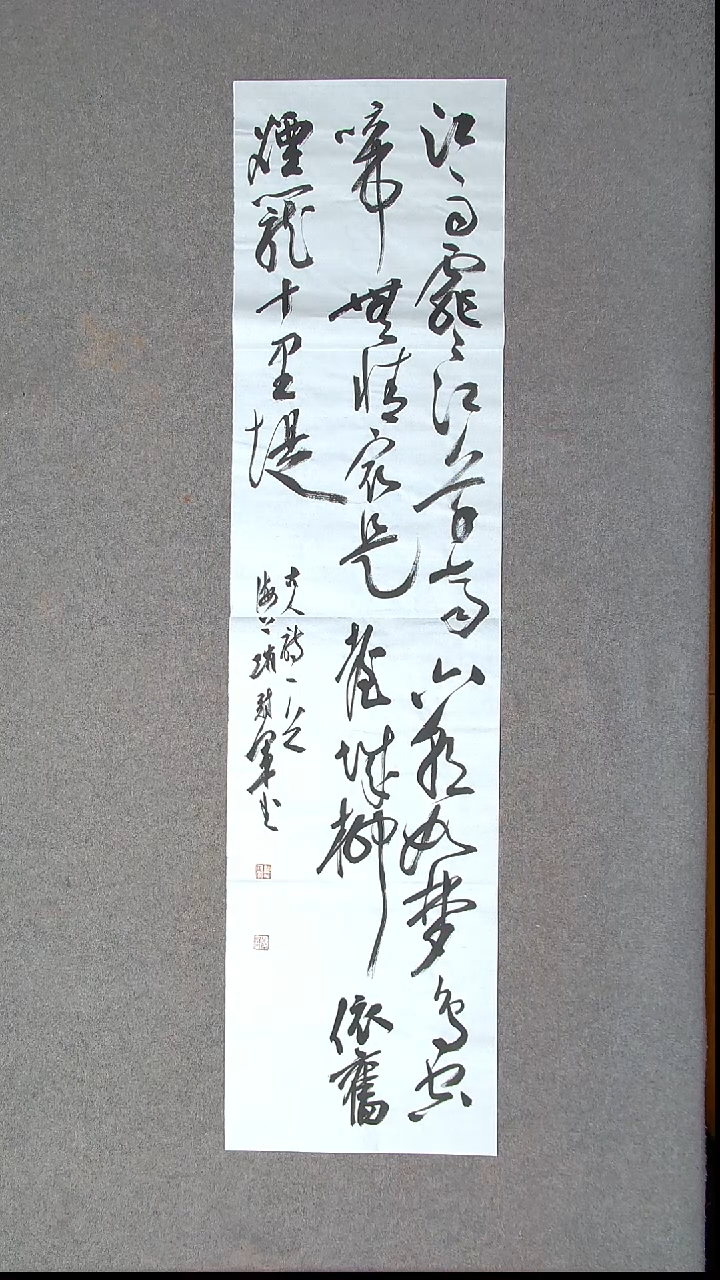 江雨霏〻江草齊六朝如梦鳥空
啼無情最是臺城柳依舊
煙籠十里堤
古人詩一首
海上
軍书